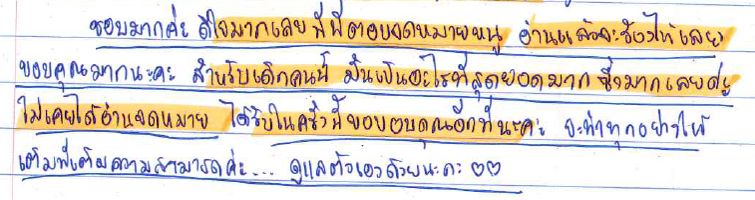 ชอบมากค่ะ ดีใจมากเลย ที่พี่ตอบจดหมายหนู อ่านแล้วจะร้องไห้เลย
ขอบคุณมากนะคะ สำหรับเด็กคนนี้ มันเป็นอะไรที่สุดยอดมาก ซึ้งมากเลยค่ะ
ไม่เคยได้อ่านจดหมาย ได้รับในครั้งนี้ขอขอบคุณอีกทีนะคะ จะทำทุกอย่างให้
เต็มที่เต็มความสามารถค่ะ... ดูแลตัวเองด้วยนะคะ